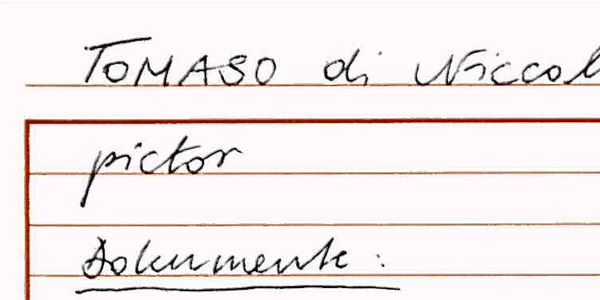 TOMASO di Niccol
pictor
Dokumente: